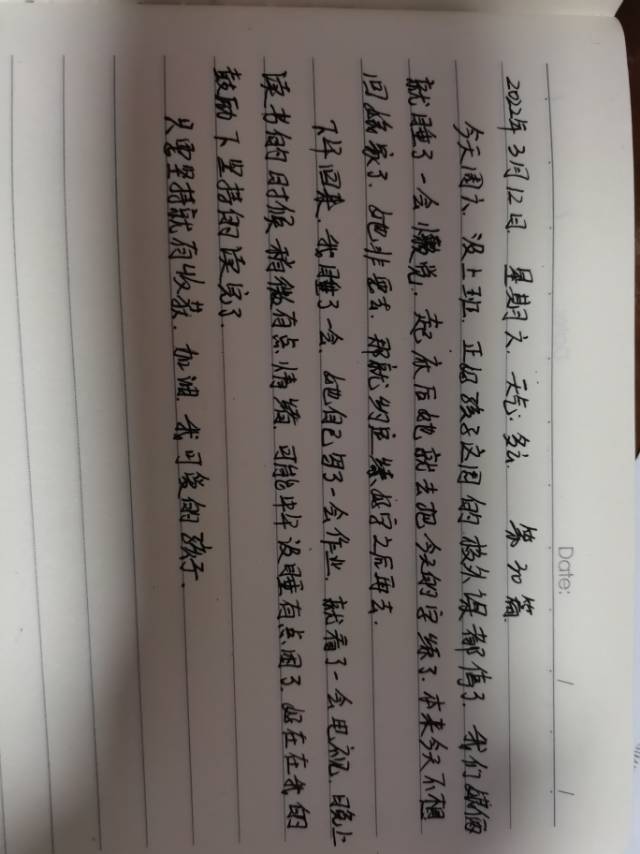 Date: / /
2022年3月12日 星期六 天气:多云 第70篇
今天周六、没上班.正好孩子这周的校外课都停了.我们娘俩
就睡了一会懒觉.起床后她就去把今天的字练了.本来今天不想
回姥家了.她非要去.那就约定练好字之后再去.
下午回来.我睡了一会.她自己写了一会作业.就看了一会电视.晚上
读书的时候稍微有点情绪.可能中午没睡有点困了.好在在我的
鼓励下坚持的读完了.
只要坚持就有收获.加油.我可爱的孩子.